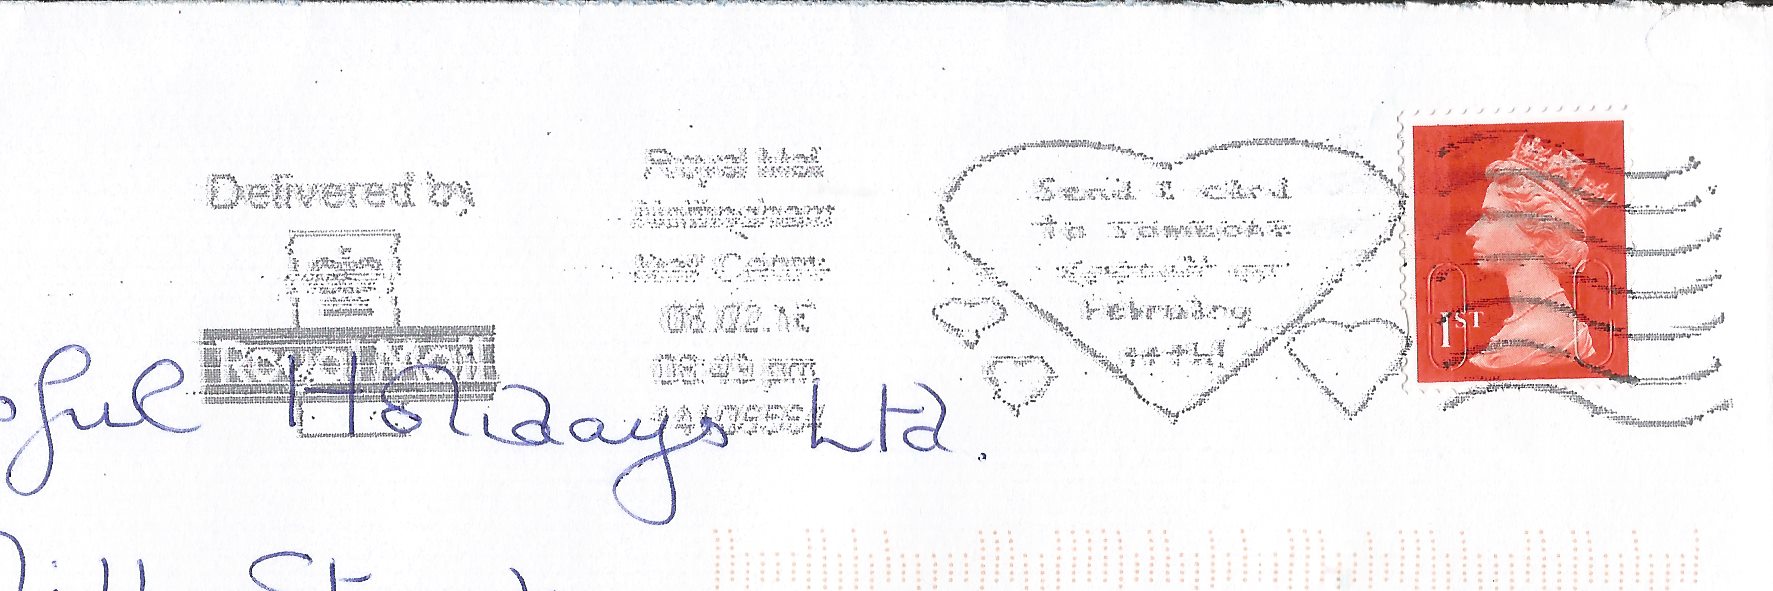 Delivered by
Royal Mail
Royal Mail
Nottingham
Mail Centre
08:49 pm
Send a card
to someone
special on
February
14th!
1ST
Holidays Ltd.